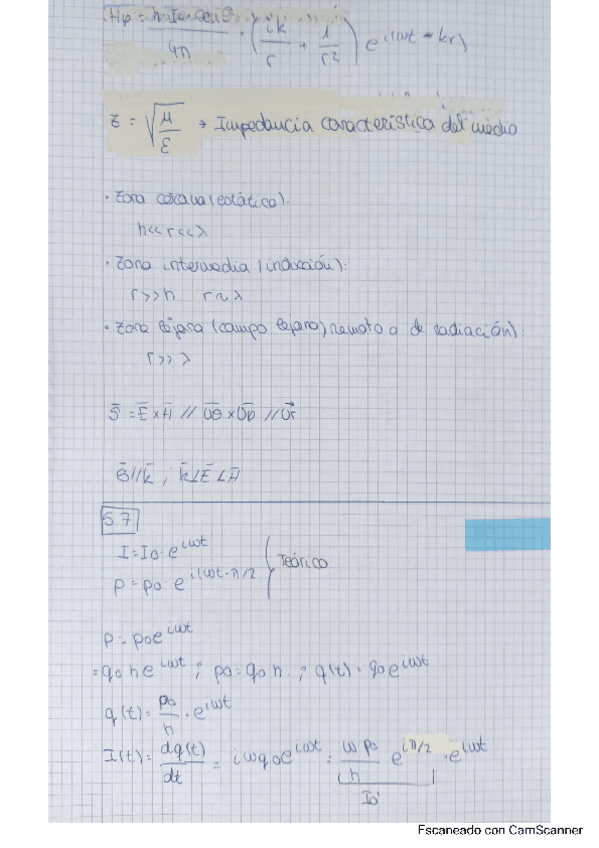 Hφ = h·I₀·senθ / 4π · (ik/r + 1/r²) e^i(ωt - kr)
z = √(μ/ε) → Impedancia característica del medio
· Zona cercana (estática):
h<<r<<λ
· Zona intermedia (inducción):
r>>h r~λ
· Zona lejana (campo lejano) remota o de radiación):
r>> λ
S̄ = Ē × H̄ // ūθ × ūφ // u⃗r
S̄//k̄ , k̄⊥Ē⊥H̄
S7
I = I₀·e^iωt
p = p₀·e^i(ωt-π/2
Teórico
p = p₀e^iωt
= q₀ h e^iωt ; p₀ = q₀ h ; q(t) = q₀e^iωt
q(t) = p₀/h · e^iωt
I(t) = dq(t)/dt = iωq₀e^iωt = ωp₀/h e^iπ/2 · e^iωt
I₀
Escaneado con CamScanner